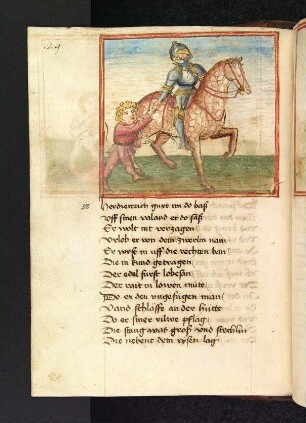 Herdietrich gurt im do baß
Vff sinen valand er do saß
Er wolt nit verzagen
Vrlob er von dem zwerlin nam
Er wyst in uff die rechten ban
Die in kund getragen
Der edel fürst lobesan
Der rait in lowen mute
Do er den ungefügen man
Vand schlaffe an der hutte
Do er siner ruwe pflag
Die stang was groß vnd
Die nebent dem rysen lag